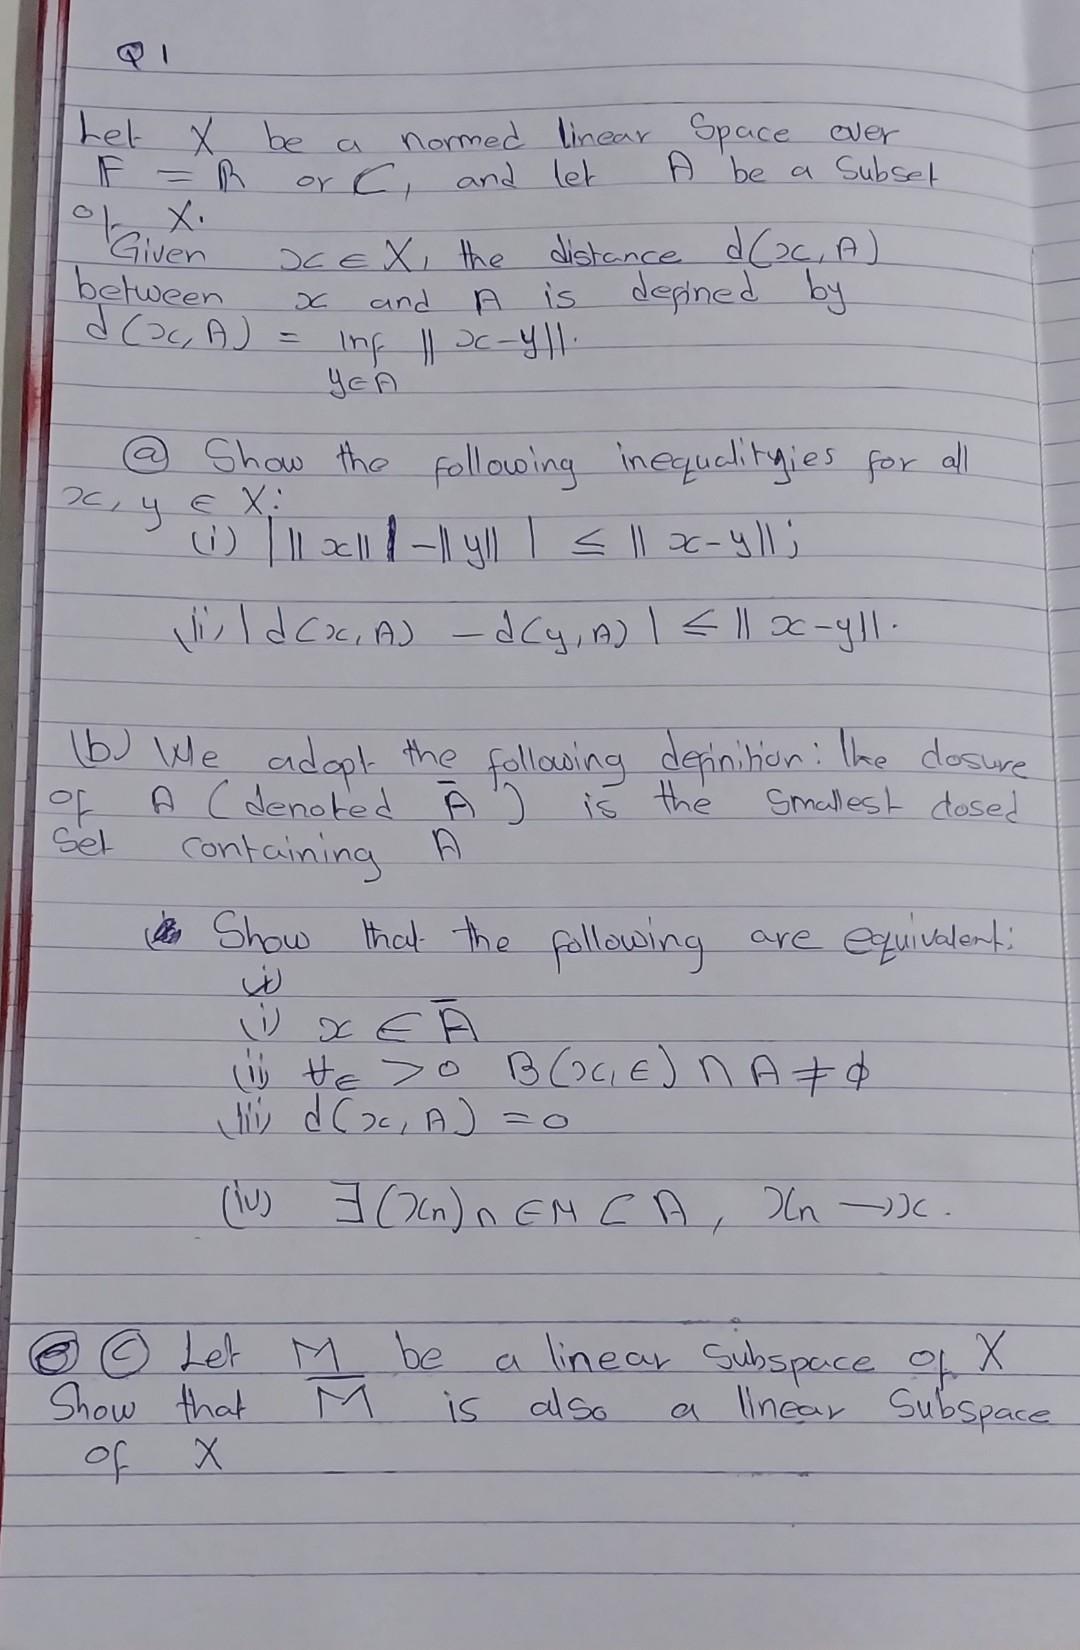 Q 1
Let X be a normed linear Space over
F = R or C, and let A be a Subset
of X.
Given x ∈ X, the distance d(x, A)
between x and A is defined by
d(x, A) = inf || x-y||.
y∈A
(a) Show the following inequalityies for all
x, y ∈ X:
(i) | || x|| - || y|| | ≤ || x-y||;
(ii) | d(x, A) - d(y, A) | ≤ || x-y||.
(b) We adopt the following definition: The closure
of A (denoted A̅) is the Smallest closed
Set containing A
Show that the following are equivalent:
(i) x ∈ A̅
(ii) ∀ε > 0 B(x, ε) ∩ A ≠ ϕ
(iii) d(x, A) = 0
(iv) ∃(xn)n ∈ N ⊂ A, xn → x.
(c) Let M be a linear Subspace of X
Show that M̅ is also a linear Subspace
of X